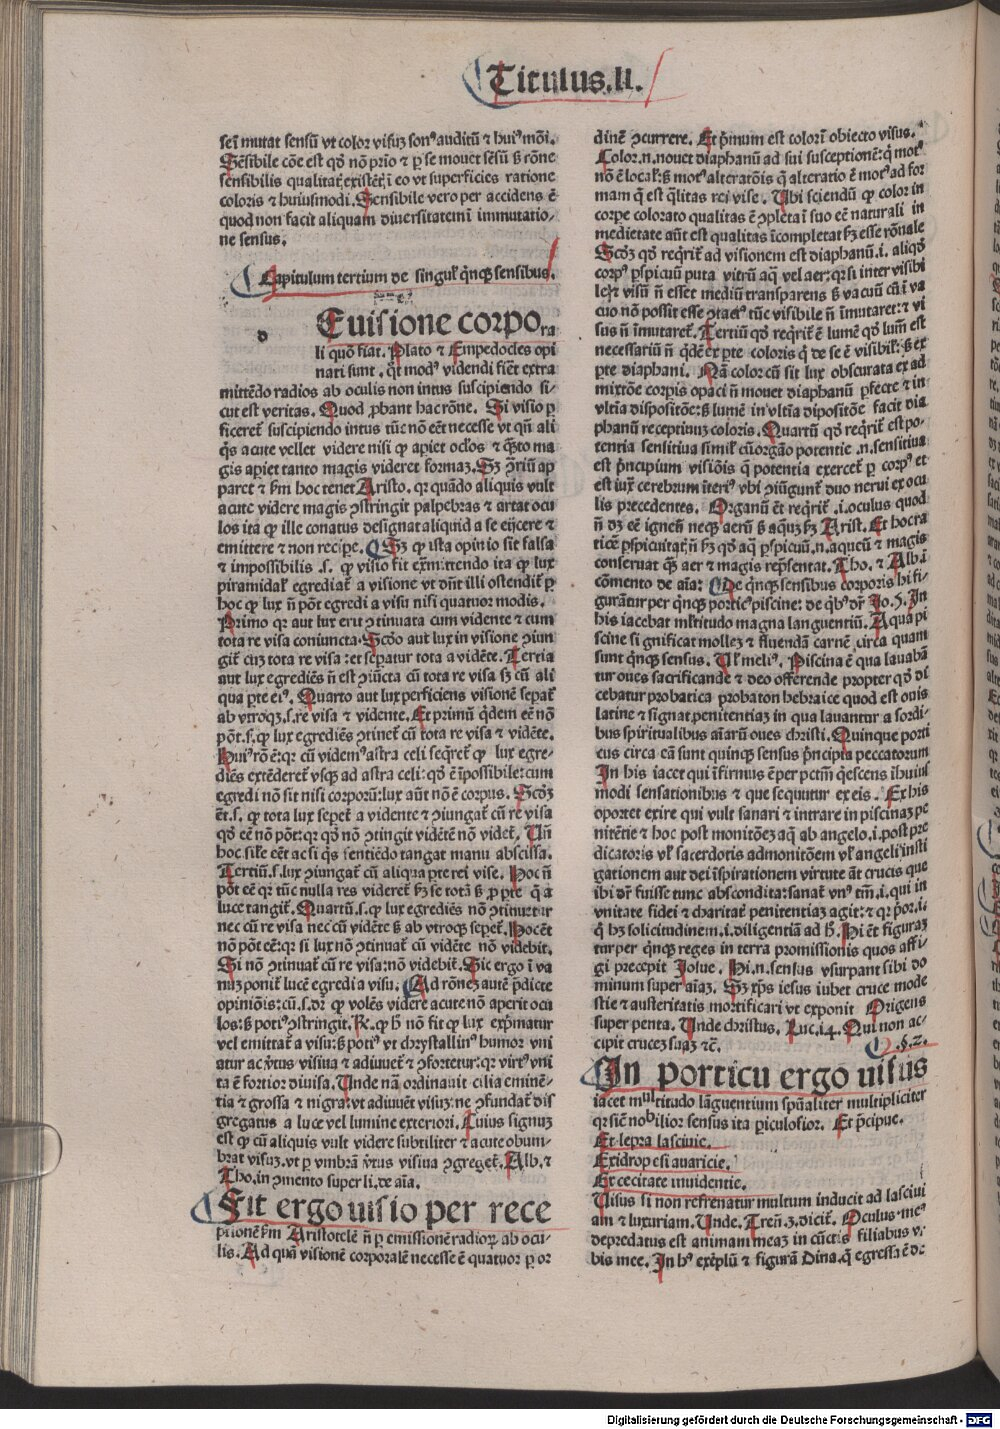 Titulus.II.
sei mutat sensū vt color visuz̄ sonꝰ auditū ⁊ huiꝰmōi.
Sēsibile cōe est qd̄ nō prio ⁊ ꝑ se mouet sēsū ꝫ rōne
sensibilis qualitat̄ existēt̄ i eo vt superficies ratione
coloris ⁊ huiusmodi. Sensibile vero per accidens ē
quod non facit aliquam diuersitatem ī immutatio-
ne sensus.
Capitulum tertium de singul̄ qͥnqꝫ sensibus.
d
Euisione corpora
li quō fiat. Plato ⁊ Empedocles opi
nati sunt. qt̄ modꝰ videndi fiēt extra
mittēdo radios ab oculis non intus suscipiendo si-
cut est veritas. Quod ꝓbant hac rōne. Si visio ꝑ
ficeret̄ suscipiendo intus tūc nō eēt necesse vt qn̄ ali
qͥs acute vellet videre nisi ꝙ apiet oclōs ⁊ qͣsto ma
gis apiet tanto magis videret formaz. Sꝫ ꝯriū ap
paret ⁊ fm̄ hoc tenet Aristo. qr quādo aliquis vult
acute videre magis ꝯstringit palpebras ⁊ artat ocu
los ita ꝙ ille conatus designat aliquid a se eijcere ⁊
emittere ⁊ non recipe. Sꝫ ꝙ ista opinio sit falsa
⁊ impossibilis .s. ꝙ visio fit ex̄mittendo ita ꝙ lux
piramidal̄ egrediat̄ a visione vt dn̄t illi ostendit̄ ꝑ
hoc ꝙ lux n̄ pōt egredi a visu nisi quatuor modis.
Primo qr aut lux erit ꝯtinuata cum vidente ⁊ cum
tota re visa coniuncta. Scd̄o aut lux in visione ꝯiun
git̄ cuz tota re visa : et sepatur tota a vidēte. Tertia
aut lux egrediēs n̄ est ꝯiūcta cū tota re visa sꝫ cū ali
qua ꝑte eiꝰ. Quarto aut lux perficiens visionē sepat̄
ab vtroqꝫ.s.re visa ⁊ vidente. Et primū qͥdem eē nō
pōt.s.ꝙ lux egrediēs ꝯtinet̄ cū tota re visa ⁊ vidēte.
Huiꝰ rō ē: qr cū videmꝰ astra celi seqͥret̄ ꝙ lux egre-
diēs extēderet̄ vsqꝫ ad astra celi: qd̄ ē īpossibile: cum
egredi nō sit nisi corporū: lux aūt nō ē corpus. Scd̄z
ēt.s. ꝙ tota lux sepet̄ a vidente ⁊ ꝯiungat̄ cū re visa
qd̄ eē nō pōt: qr qd̄ nō ꝯtingit vidētē nō videt̄. Un̄
hoc sil̄e eēt ac si qͥs sentiēdo tangat manu abscissa.
Tertiū.s.lux ꝯiungat̄ cū aliqua ꝑte rei vise. Hoc n̄
pōt eē qr tūc nulla res videret̄ fm̄ se totā ꝫ ꝓ ꝑte qͣ a
luce tangit̄. Quartū.s.ꝙ lux egrediēs nō ꝯtinuetur
nec cū re visa nec cū vidēte ꝫ ab vtroqꝫ sepet̄. Hoc ēt
nō pōt eē: qr si lux nō ꝯtinuat̄ cū vidēte nō videbit.
Si nō ꝯtinuat̄ cū re visa: nō videbit̄. Sic ergo ī va
nuz ponit̄ lucē egredi a visu. Ad rōnez autē p̄dicte
opiniōis: cū.s.dr̄ ꝙ volēs videre acute nō aperit ocu
los: ꝫ potiꝰ ꝯstringit. R̄e. ꝙ ħ nō fit ꝙ lux exp̄matur
vel emittat̄ a visu: ꝫ potiꝰ vt chrystallinꝰ humor vni
atur ac v̄tus visiua ⁊ adiuuet̄ ⁊ ꝯfortetur: qr virtꝰ vni
ta ē fortior diuisa. Unde nā ordinauit cilia eminē-
tia ⁊ grossa ⁊ nigra: vt adiuuēt visuz: ne ꝯfundat̄ dis
gregatus a luce vel lumine exteriori. Cuius signuz
est ꝙ cū aliquis vult videre subtiliter ⁊ acute obum-
brat visuz. vt ꝑ vmbrā v̄tus visiua ꝯgreget̄. Alb. ⁊
Tho. in ꝯmento super li. de aīa.
Fit ergo uisio per rece
ptionē fm̄ Aristotelē n̄ ꝑ emissionē radioꝝ ab ocu-
lis. Ad quā visionē corporalē necesse ē quatuor ꝑ or
dinē ꝯcurrere. Et p̄mum est colorī obiecto visus.
Color.n.mouet diaphanū ad sui susceptionē: qͥ motꝰ
nō ē local̄: ꝫ motꝰ alteratōis qͣ alteratio ē motꝰ ad for
mam qͥ est qͣlitas rei vise. Ubi sciendū ꝙ color in
corpe colorato qualitas ē ꝯpleta ī suo eē naturali in
medietate aūt est qualitas īcompletat̄ fꝫ esse rōnale
Scd̄z qd̄ reqͥrit̄ ad visionem est diaphanū.i. aliqd̄
corpꝰ ꝑspicuū puta vitrū aqͣ vel aer: qr si inter visibi
le ⁊ visū n̄ esset mediū transparens ꝫ vacuū cū ī va
cuo nō possit esse ꝯtactꝰ tūc visibile n̄ īmutaret: ⁊ vi
sus n̄ īmutaret̄. Tertiū qd̄ reqͥrit̄ ē lumē qd̄ lum̄ est
necessariū n̄ qͥdē ex ꝑte coloris qͥ de se ē visibil̄: ꝫ ex
ꝑte diaphani. Nā color cū sit lux obscurata ex ad
mixtōe corpis opaci n̄ mouet diaphanū ꝑfecte ⁊ in
vltīa dispositōe: ꝫ lumē in vltīa dipositōe facit dia
phanū receptiuuz coloris. Quartū qd̄ reqͥrit̄ est po-
tentia sensitiua simil̄ cū orgāo potentie .n. sensitiua
est p̄ncipium visiōis qͣ potentia exercet̄ ꝑ corpꝰ et
est iux̄ cerebrum īteriꝰ vbi ꝯiūgunt̄ duo nerui ex ocu
lis precedentes. Organū ēt reqͥrit̄ .i. oculus quod
n̄ dꝫ eē igneū neqꝫ aerū ꝫ aqͥuꝫ fꝫ Arist. Et hoc ra
ticē ꝑspicuitat̄ n̄ fꝫ qd̄ aqͣ ꝑspicuū.n.aqueū ⁊ magis
conseruat qͣꝫ aer ⁊ magis rep̄sentat. Tho. ⁊ Alb. ī
cōmento de aīa: De qͥnqꝫ sensibus corporis hi fi-
gurātur per qͥnqꝫ porticꝰ piscine: de qͥbꝰ dr̄ Jo.5. In
his iacebat ml̄titudo magna languentiū. Aqua pi
scine significat mollez ⁊ fluendā carnē circa quam
sunt qͥnqꝫ sensus. Ul̄ meliꝰ. Piscina ē qua lauabā
tur oues sacrificande ⁊ deo offerende propter qd̄ di
cebatur probatica probaton hebraice quod est ouis
latine ⁊ signat penitentiaz in qua lauantur a sordi-
bus spiritualibus aīarū oues christi. Quinque porti
cus circa eā sunt quinqꝫ sensus p̄ncipia peccatorum
In his iacet qui īfirmus ē per pctm̄ qͥescens ī huiuf
modi sensationibus ⁊ que sequutur ex eis. Ex his
oportet exire qui vult sanari ⁊ intrare in piscinaz pe
nitētie ⁊ hoc post monitōez aqͣ ab angelo.i.post pre
dicatoris vl̄ sacerdotis admonitōem vl̄ angeli īnsti
gationem aut dei īspirationem virtute āt crucis que
ibi dr̄ fuisse tunc abscondita: sanat̄ vnꝰ tm̄.i.qui in
vnitate fidei ⁊ charitat̄ penitentiaz agit: ⁊ qr p̄or.i.
qͥ hꝫ solicitudinem.i.diligentiā ad ħ. Hi ēt figuraz
tur per qͥnqꝫ reges in terra promissionis quos affi-
gi precepit Josue. Hi.n.sensus vsurpant sibi do
minum super aīaz. Sꝫ xp̄s iesus iubet cruce mode
stie ⁊ austeritatis mortificari vt exponit Origens
super penta. Unde christus. Luc.14. Qui non ac-
cipit crucez suaz ⁊c̄.
.§.2.
In porticu ergo uisus
iacet multitudo lāguentium spūaliter multipliciter
qr siē nobilior sensus ita ꝑiculosior. Et p̄cipue.
Et lepra lasciuie.
Ex idropesi auaricie.
Et cecitate inuidentie.
Uisus si non refrenatur multum inducit ad lasciui
am ⁊ luxuriam. Unde. Tren̄.3. dicit̄. Oculus meꝰ
depredatus est animam meaz in cūctis filiabus vr
bis mee. In hꝰ exēplū ⁊ figurā Dina. qͥ egressa ē de
Digitalisierung gefördert durch die Deutsche Forschungsgemeinschaft - DFG